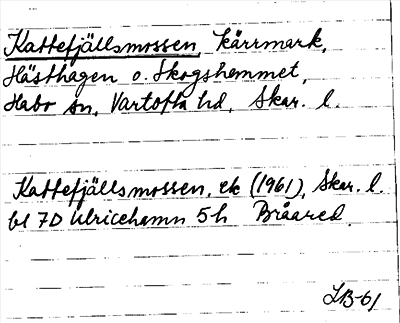 Kattefjällsmossen, kärrmark,
Hästhagen o. Skogshemmet,
Habo sn, Vartofta hd, Skar. l.
Kattefjällsmossen, ek (1961), Skar. l.
bl 7D Ulricehamn 5h Bråared.
LB-61